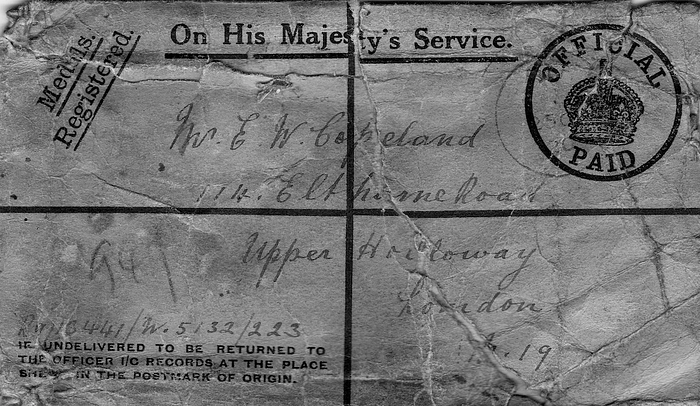 On His Majesty's Service.
Medals.
Registered.
OFFICIAL
PAID
Mr. E. W. Copeland
114. Elthorne Road
Upper Holloway
London
N. 19
941
IF UNDELIVERED TO BE RETURNED TO
THE OFFICER I/C RECORDS AT THE PLACE
IN THE POSTMARK OF ORIGIN.